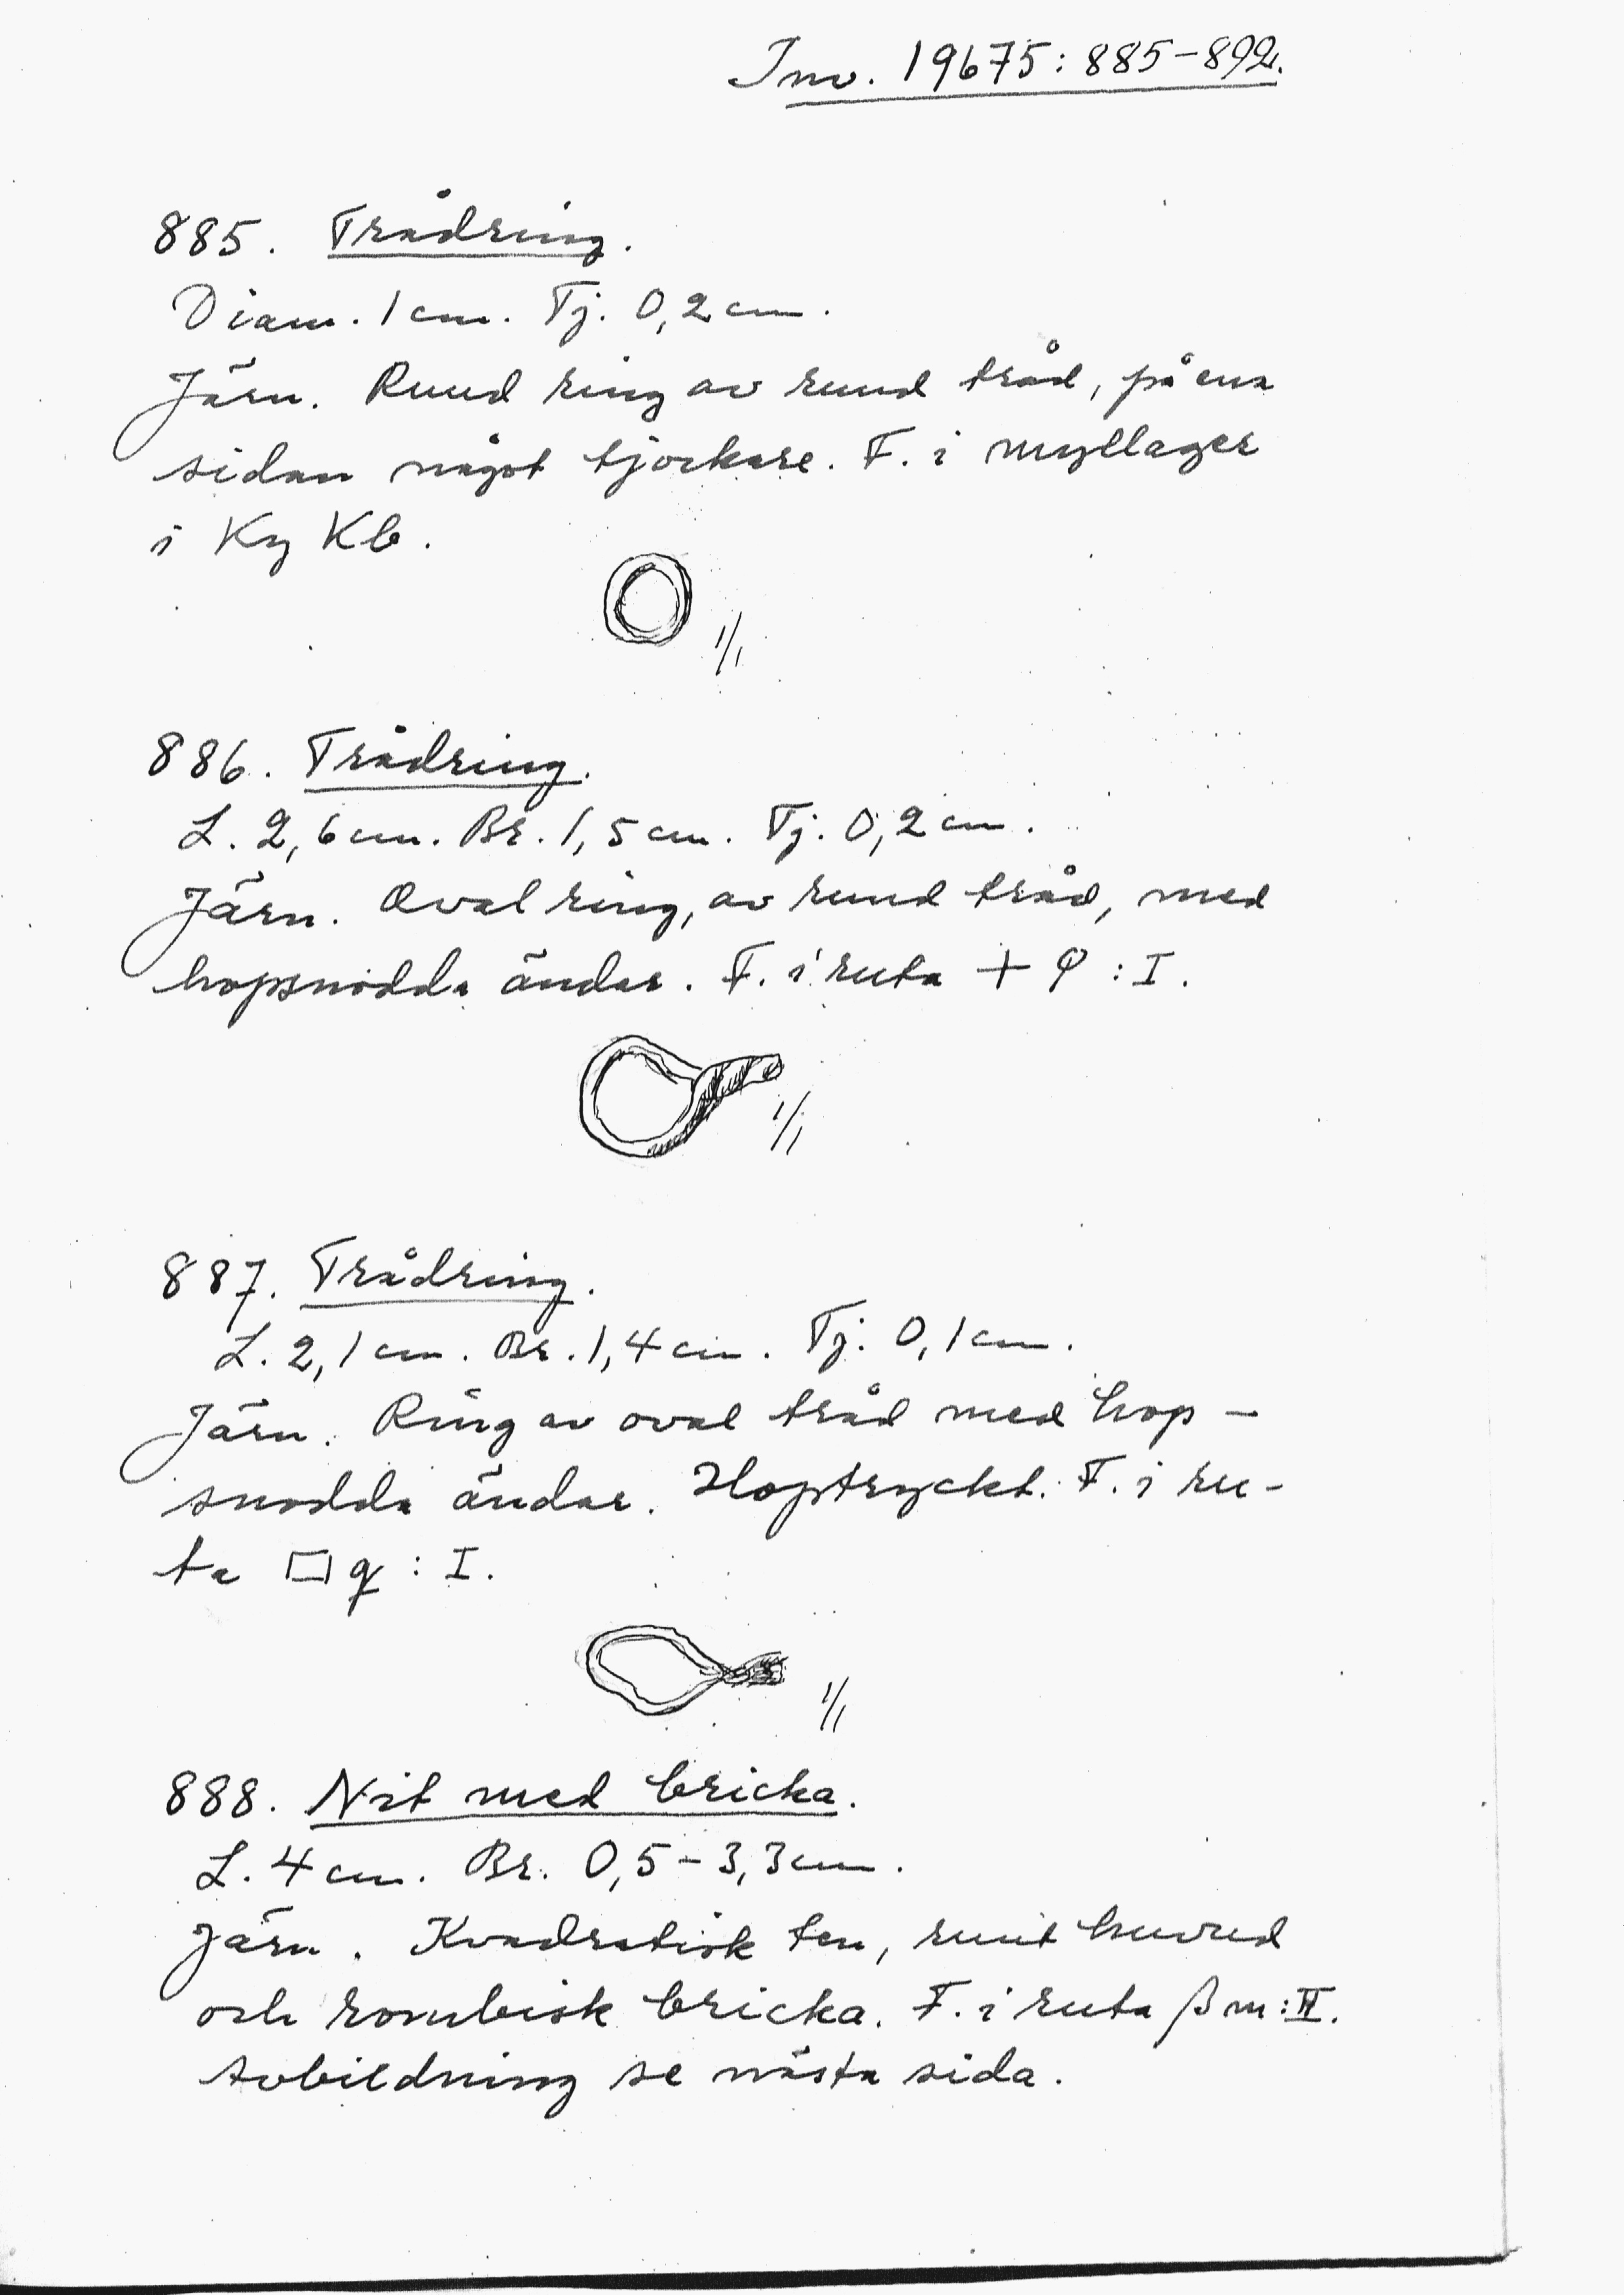 Inv. 19675:885-892.
885. Trådring.
Diam. 1 cm. Tj. 0,2 cm.
Järn. Rund ring av rund tråd, på ena
sidan något tjockare. F. i myllager
i Ky Kb.
1/1
886. Trådring.
L. 2,6 cm. Br. 1,5 cm. Tj. 0,2 cm.
Järn. Oval ring, av rund tråd, med
hopsnodda ändar. F. i ruta + φ : I.
1/1
887. Trådring.
L. 2,1 cm. Br. 1,4 cm. Tj. 0,1 cm.
Järn. Ring av oval tråd med hop-
snodda ändar. Hoptryckt. F. i ru-
ta □ q : I.
1/1
888. Nit med bricka.
L. 4 cm. Br. 0,5-3,3 cm.
Järn. Kvadratisk ten, runt huvud
och rombisk bricka. F. i ruta β m : II.
Avbildning se nästa sida.